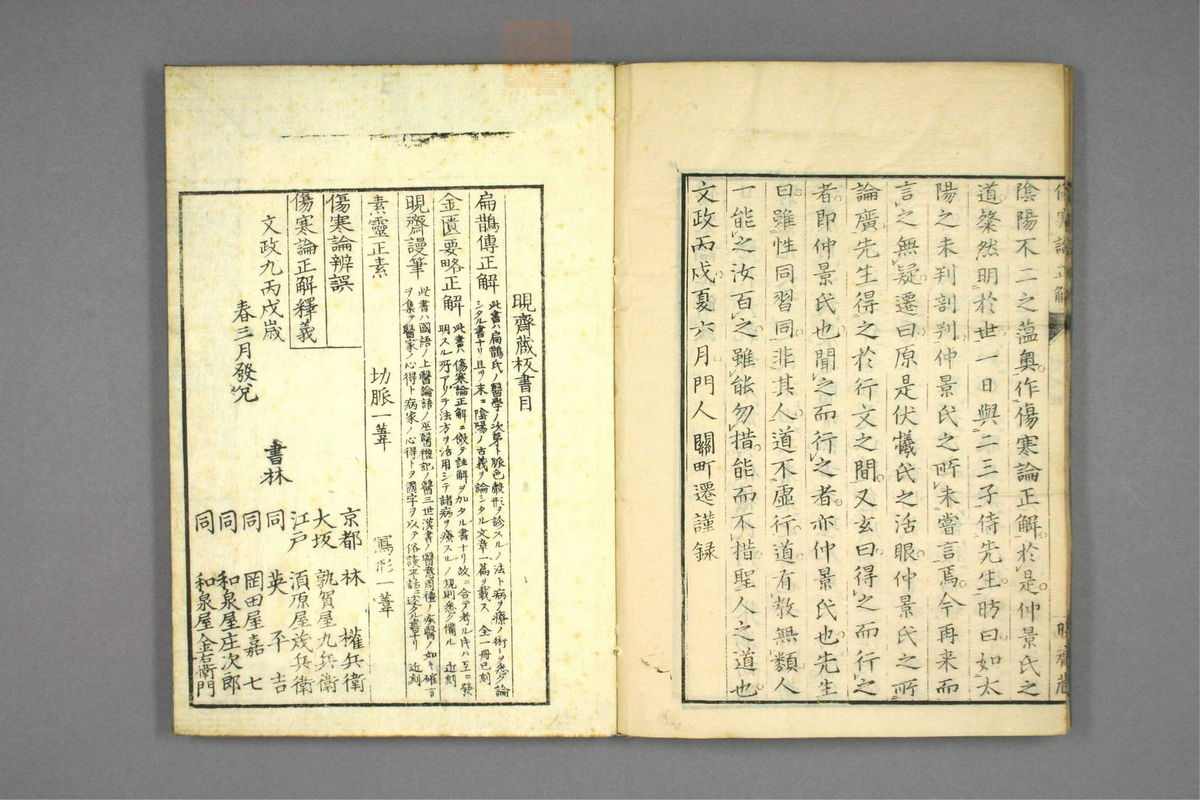 陰陽不二之薀奧作傷寒論正解於是仲景氏之
道粲然明於世一日與二三子侍先生昉曰如太
陽之未判剖判仲景氏之所未嘗言焉今再来而
言之無疑遷曰原是伏犧氏之活眼仲景氏之所
論廣先生得之於行文之間又玄曰得之而行之
者即仲景氏也聞之而行之者亦仲景氏也先生
曰雖性同習同非其人道不虛行道有教無類人
一能之汝百之雖能勿措能而不措聖人之道也
文政丙戌夏六月門人關町遷謹録
晛齋藏板書目
扁鵲傳正解 此書ハ扁鵲氏ノ醫學ノ次第ト脈色聲形ヲ診スルノ法ト病ヲ療ノ術ーヲ悉ク論
シタル書ナリ且ツ末ニ陰陽ノ古義ヲ論シタル文章一篇ヲ載ス 全一冊已刻
金匱要略正解 此書ハ傷寒論正解ニ傚テ註解ヲ加タル書ナリ故ニ合テ考ル時ハ互ニ發
明スル所アリテ法方ヲ活用シテ諸病ヲ療スルノ規則悉ク備ル 近刻
晛齋謾筆 此書ハ國語ノ上醫論語ノ巫醫禮記ノ醫三世漢書ノ醫意周禮ノ疾醫ノ如キ確言
ヲ集テ醫家ノ心得ト病家ノ心得トヲ國字ヲ以テ俗談平話ニ述タル書ナリ 近刻
素靈正素 切脈一葦 寫形一葦
傷寒論辨誤
傷寒論正解釋義
文政九丙戌歳
春三月發兌
書林
京都 林 權兵衛
大坂 敦賀屋九兵衛
江戸 須原屋茂兵衛
同 英 平吉
同 岡田屋嘉七
同 和泉屋庄次郎
同 和泉屋金右衛門